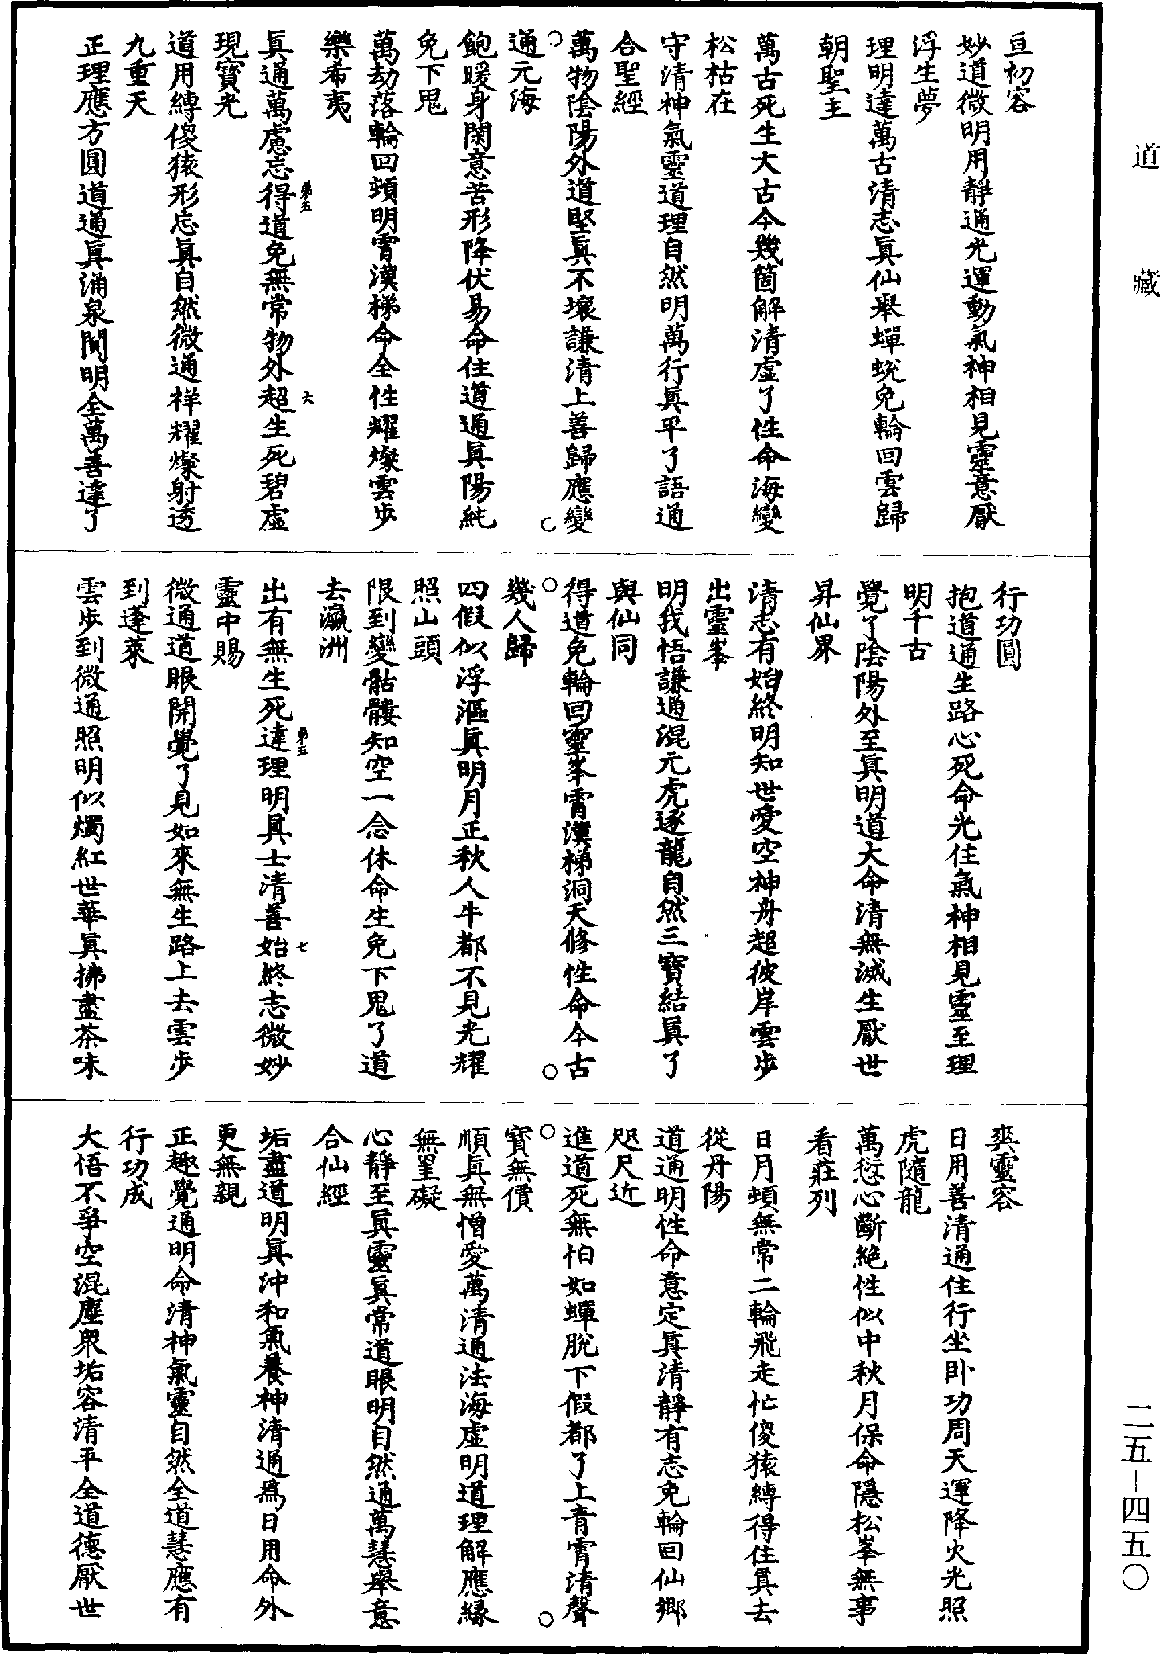 道藏
亘初容
妙道微明用靜通光運動氣神相見靈意厭
浮生夢
理明達萬古清志真仙舉蟬蛻免輪回雲歸
朝聖主
萬古死生大古今幾箇解清虛了性命海變
松枯在
守清神氣靈道理自然明萬行真平了語通
合聖經
萬物陰陽外道堅真不壞謙清上善歸應變
通元海
飽暖身閑意苦形降伏易命住道通真陽純
免下鬼
萬劫落輪回頓明霄漢梯命全性耀燦雲步
樂希夷
真通萬慮忘得道免無常物外超生死碧虛
第五
六
現寶光
道用縛傻猿形忘真自然微通祥耀燦射透
九重天
正理應方圓道通真涌泉闡明全萬善達了
行功圓
抱道通生路心死命光住氣神相見靈至理
明千古
覺了陰陽外至真明道大命清無滅生厭世
昇仙界
清志有始終明知世愛空神舟超彼岸雲步
出靈峯
明我悟謙通混元虎逐龍自然三寶結真了
與仙同
得道免輪回靈峯霄漢梯洞天修性命今古
幾人歸
四假似浮漚真明月正秋人牛都不見光耀
照山頭
限到變骷髏知空一念休命生免下鬼了道
去瀛洲
出有無生死達理明真士清善始終志微妙
第五
七
靈中賜
微通道眼開覺了見如來無生路上去雲步
到蓬萊
雲步到微通照明似燭紅世華真拂盡茶味
爽靈容
日用善清通住行坐卧功周天運降火光照
虎隨龍
萬愆心斷絕性似中秋月保命隱松峯無事
看莊列
日月頓無常二輪飛走忙傻猿縛得住真去
從丹陽
道通明性命意定真清靜有志免輪回仙鄉
咫尺近
進道死無怕如蟬脫下假都了上青霄清聲
寶無價
順真無憎愛萬清通法海虛明道理解應緣
無罣礙
心靜至真靈真常道眼明自然通萬慧舉意
合仙經
垢盡道明真沖和氣養神清通為日用命外
更無親
正趣覺通明命清神氣靈自然全道慧應有
行功成
大悟不爭空混塵眾垢容清平全道德厭世
二五－四五〇